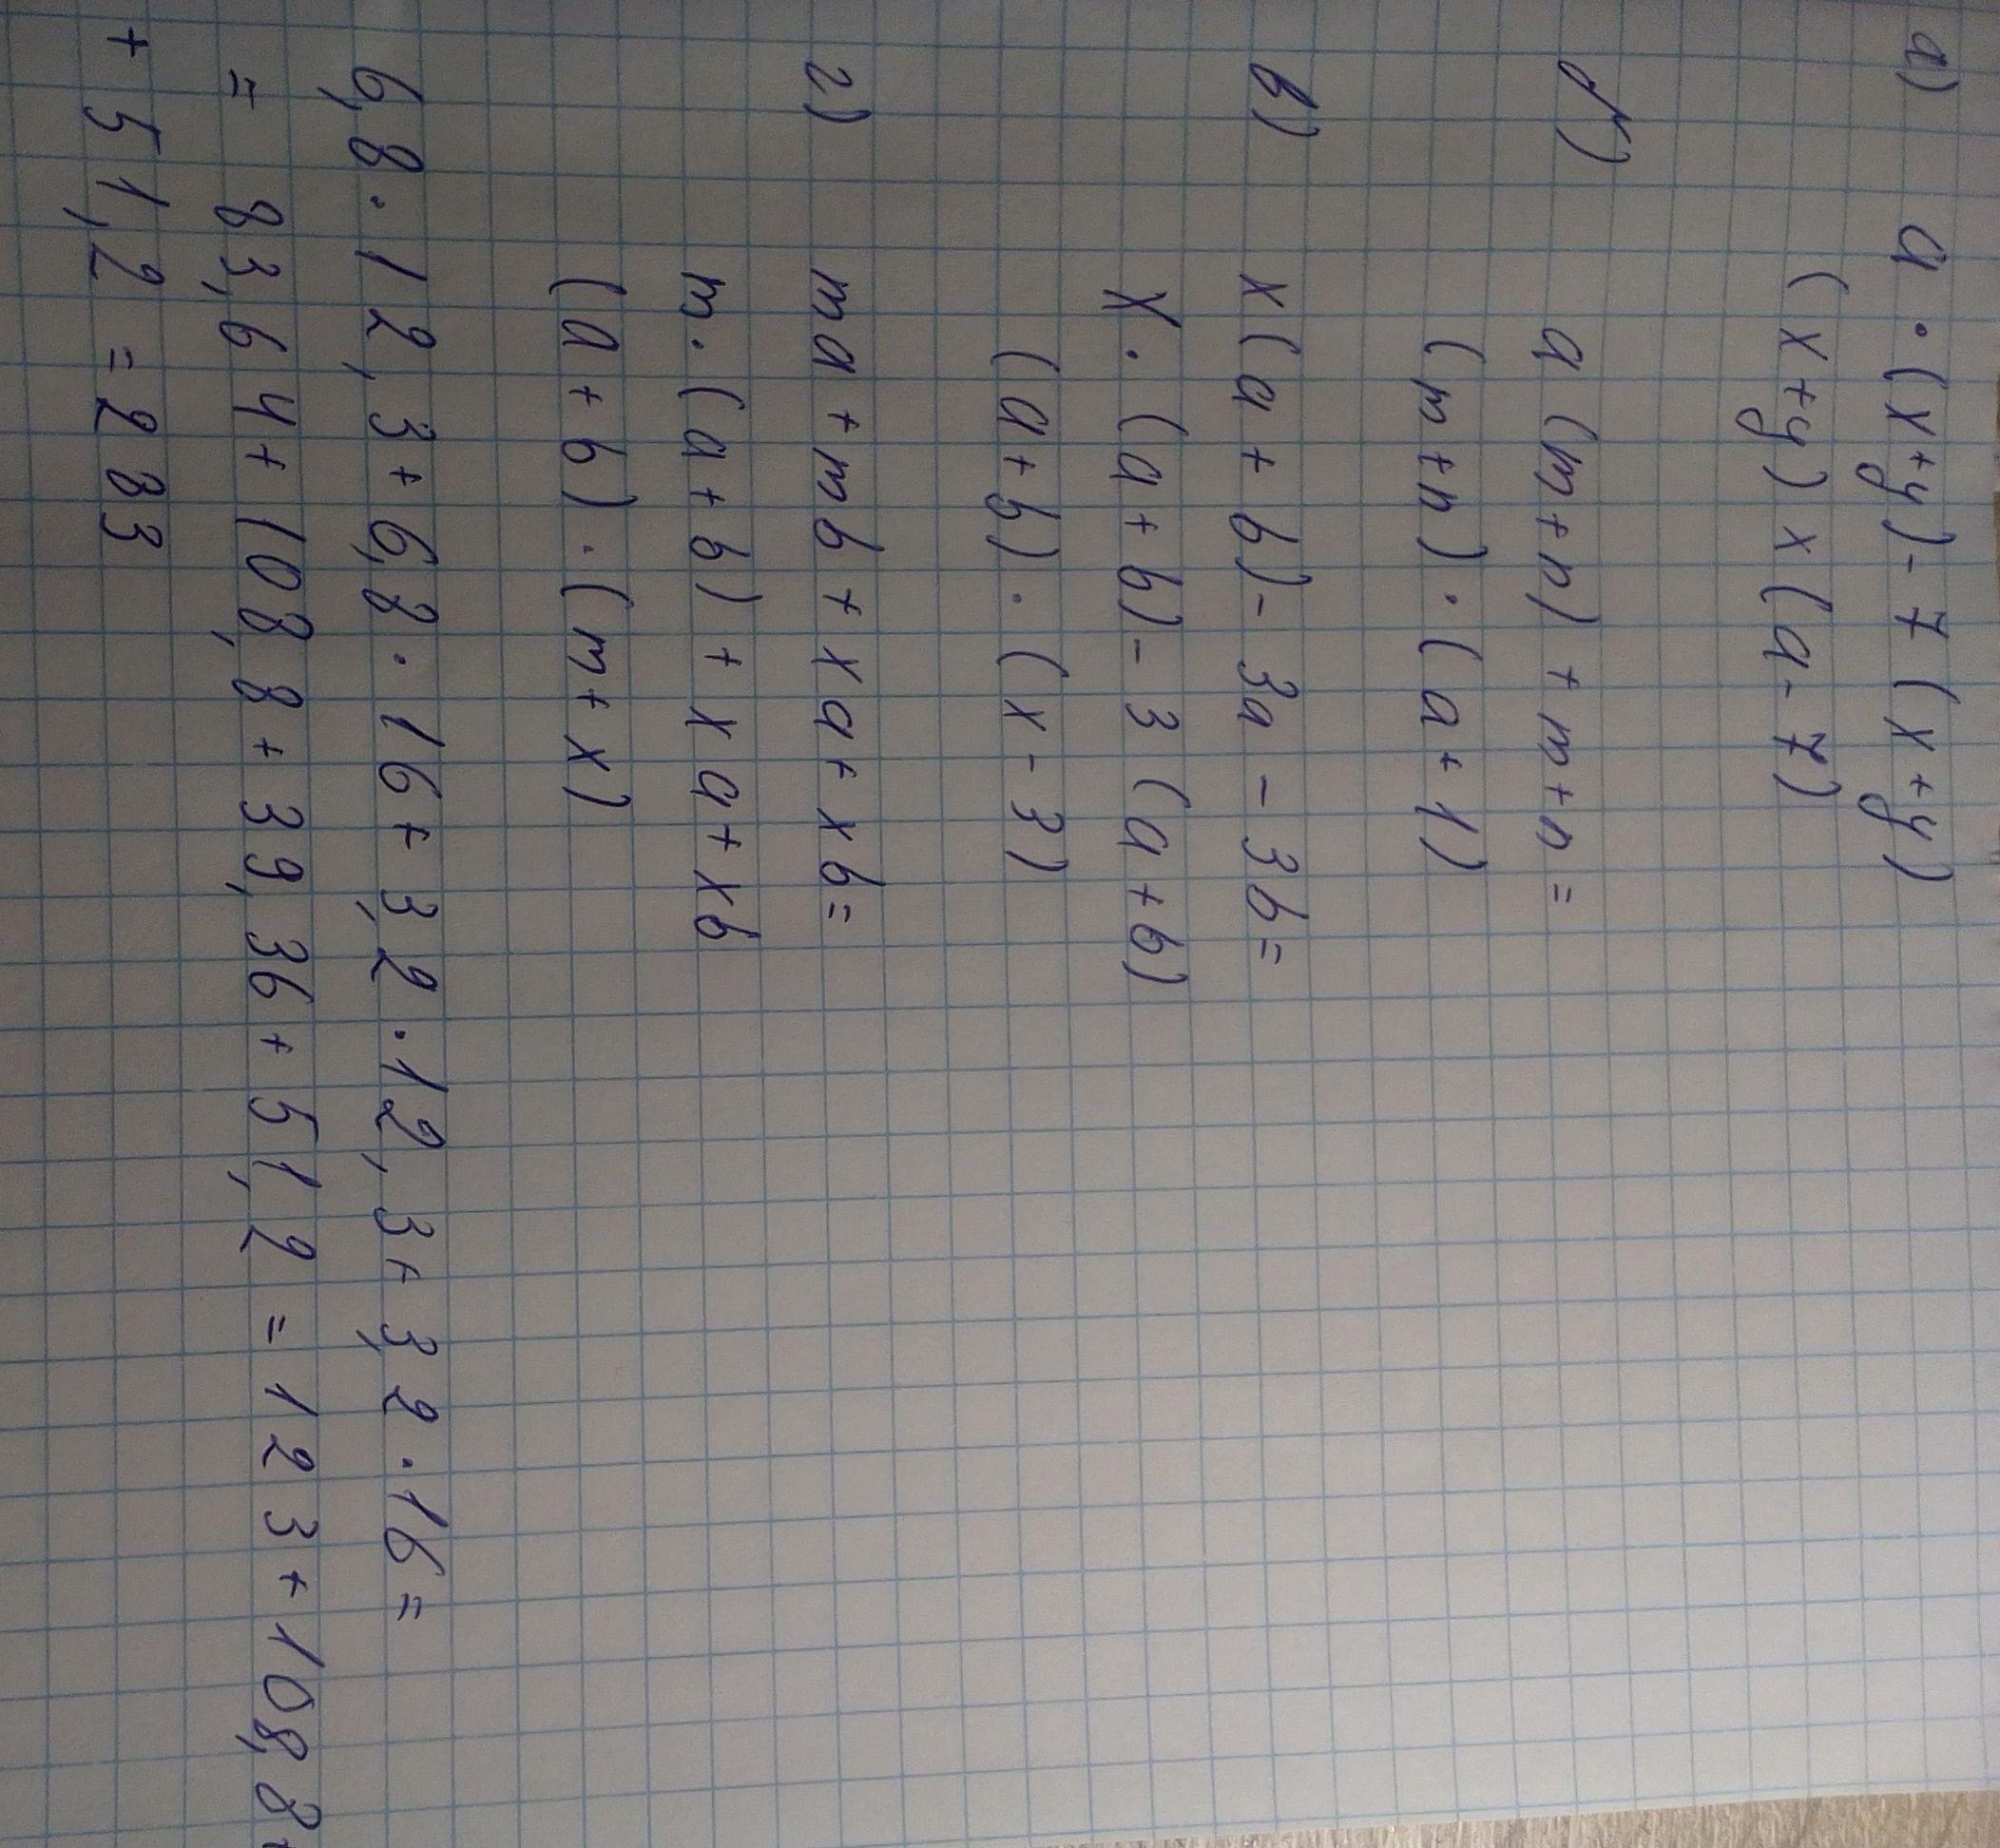 а) a · (x+y) - 7 (x+y)
(x+y) x (a - 7)
б) a (m+n) + m+n =
(m+n) · (a+1)
в) x (a + b) - 3a - 3b =
x · (a + b) - 3 (a + b)
(a+b) · (x - 3)
г) ma + mb + xa + xb =
m · (a + b) + xa + xb
(a + b) · (m + x)
6,8 · 12,3 + 6,8 · 16 + 3,2 · 12,3 + 3,2 · 16 =
= 83,64 + 108,8 + 39,36 + 51,2 = 123 + 108,8 +
+ 51,2 = 283